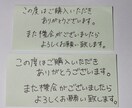 この度はご購入いただき
ありがとうございます。
また機会がございましたら
よろしくお願い致します。
この度はご購入いただき
ありがとうございます。
また機会がございましたら
よろしくお願い致します。